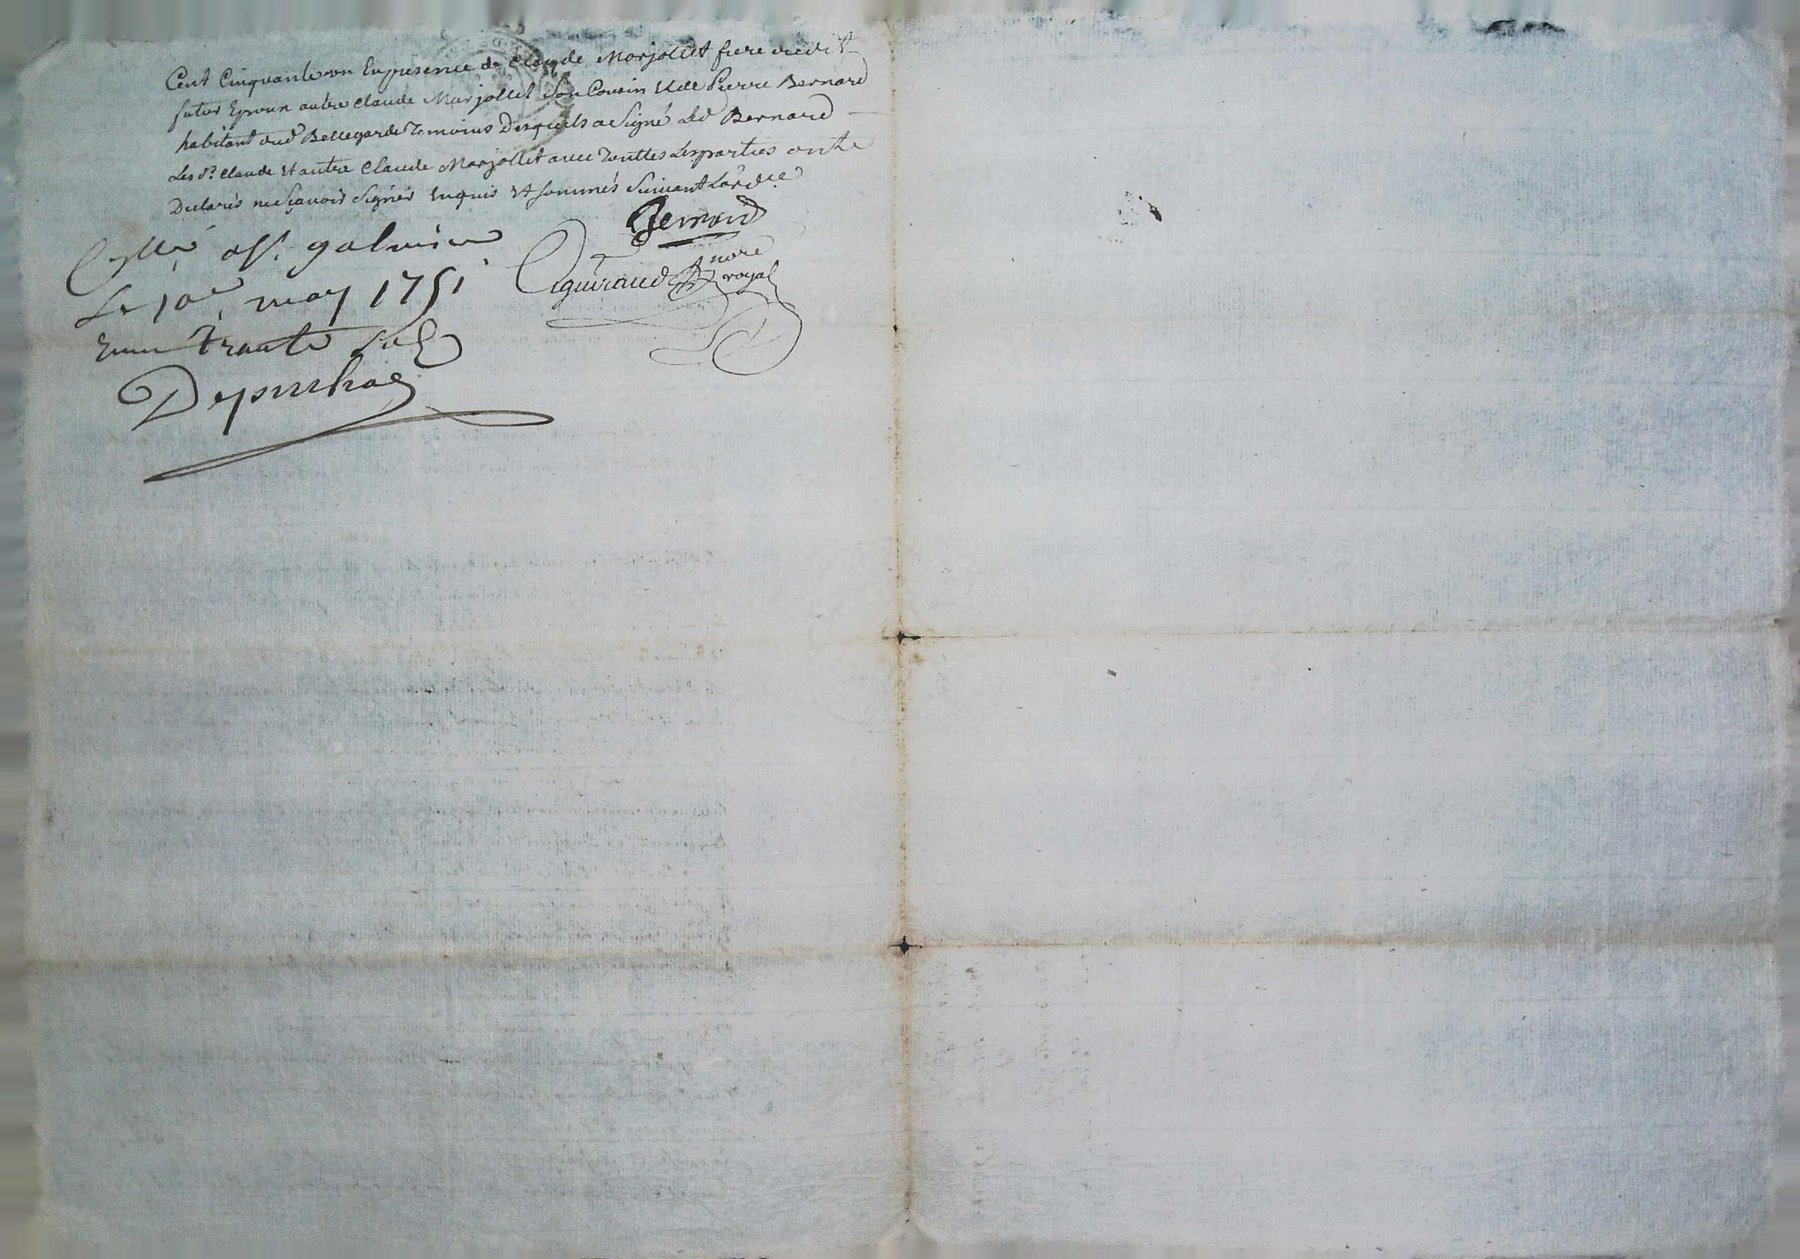 Cent Cinquante un En presence de Claude Marjollet frere dudit
futur Epoux autre Claude Marjollet son Cousin Et de Pierre Bernard
habitant aud Bellegarde Temoins Desquels a signé Led Bernard
Les sr. Claude Et autre Claude Marjollet avec Touttes Les parties ont
Declarés ne sçavoir signer Enquis Et sommés suivant L'ordce
Bernard
Guiraud nore
royal
Collé a st. galmier
Le 10e may 1751
Trante